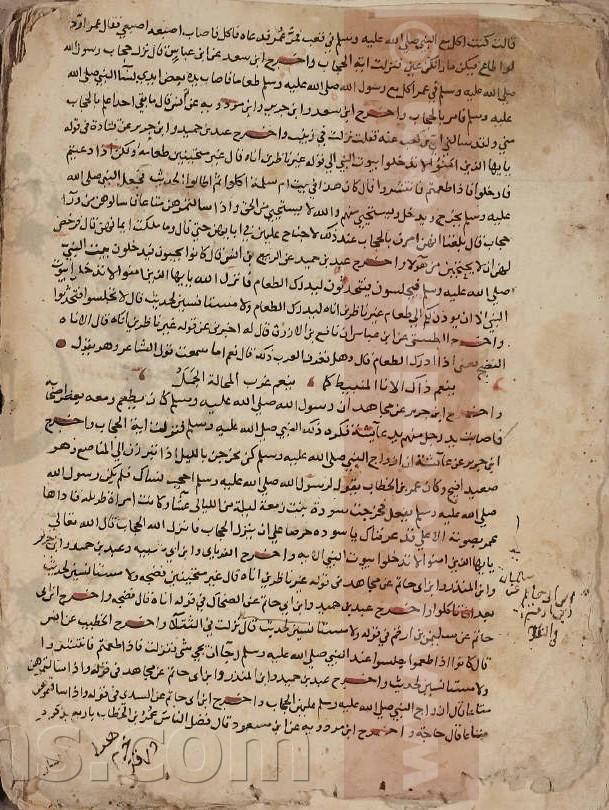 قالت كنت آكل مع النبي صلى الله عليه وسلم في قعب فمر عمر فدعاه فاكل فاصاب اصبعه اصبعي فقال عمر اوه
لو اطاع فيكن ما راتكن عين فنزلت اية الحجاب واخرج ابن سعد عن ابن عباس قال نزل حجاب رسول الله
صلى الله عليه وسلم في عمر اكل مع رسول الله صلى الله عليه وسلم طعاما فاصاب يده بعض ايدي نسا النبي صلى الله
عليه وسلم فامر بالحجاب واخرج ابن سعد وابن جرير وابن مردويه عن انس قال ما بقي احد اعلم بالحجاب
مني ولقد سالني ابي بن كعب عنه فقلت نزلت في زينب واخرج عبد بن حميد وابن جرير عن قتادة في قوله
يايها الذين امنوا لا تدخلوا بيوت النبي الى قوله غير ناظرين اناه قال غير متحينين طعامه ولكن اذا دعيتم
فادخلوا فاذا طعمتم فانتشروا قال كان هذا في بيت ام سلمة اكلوا ثم اطالوا الحديث فجعل النبي صلى الله
عليه وسلم يخرج ويدخل ويستحيي منهم والله لا يستحيي من الحق واذا سالتموهن متاعا فاسالوهن من ورآ
حجاب قال بلغنا انهن امرن بالحجاب عند ذلك لا جناح عليهن في ابايهن حتى قال وما ملكت ايمانهن قال فرخص
لهن ان لا يحتجبن من هولا واخرج عبد بن حميد عن الربيع بن انس قال كانوا يجيون فيدخلون بيت النبي
صلى الله عليه وسلم فيجلسون يتحدثون ليدرك الطعام فانزل الله يايها الذين امنوا لا تدخلوا بيوت
النبي الا ان يوذن لكم الى طعام غير ناظرين اناه ليدرك الطعام ولا مستانسين لحديث قال لا تجلسوا فتحدثوا
واخرج الطستي عن ابن عباس ان نافع بن الازرق قال له اخبرني عن قوله غير ناظرين اناه قال الاناه
النضيج يعني اذا ادرك الطعام قال وهل تعرف العرب ذلك قال نعم اما سمعت قول الشاعر وهو يقول
ينعم ذاك الانا الغبيط كما ينعم غرب المحالة الجمل
واخرج ابن جرير عن مجاهد ان رسول الله صلى الله عليه وسلم كان يطعم ومعه بعض اصحابه
فاصابت يد رجل منهم يد عآيشة فكره ذلك النبي صلى الله عليه وسلم فنزلت اية الحجاب واخرج
ابن جرير عن عآيشة ان ازواج النبي صلى الله عليه وسلم كن يخرجن بالليل اذا تبرزن الى المناصع وهو
صعيد افيح وكان عمر بن الخطاب يقول لرسول الله صلى الله عليه وسلم احجب نساك فلم يكن رسول الله
صلى الله عليه وسلم يفعل فخرجت سودة بنت زمعة ليلة من الليالي عشآ وكانت امراة طويلة فناداها
عمر بصوته الاعلى قد عرفناك يا سودة حرصا على ان ينزل الحجاب فانزل الله الحجاب قال الله تعالى
يايها الذين امنوا لا تدخلوا بيوت النبي الاية واخرج الفريابي وابن ابي شيبة وعبد بن حميد وابن جرير
وابن المنذر وابن ابي حاتم عن مجاهد في قوله غير ناظرين اناه قال غير متحينين نضجه ولا مستانسين لحديث
بعد ان تاكلوا واخرج عبد بن حميد وابن ابي حاتم عن الضحاك في قوله اناه قال نضجه واخرج ابن ابي
حاتم عن سليمن بن ارقم في قوله ولا مستانسين لحديث قال نزلت في الثقلآ واخرج الخطيب عن انس
قال كانوا اذا طعموا جلسوا عند النبي صلى الله عليه وسلم رجآ ان يجي شي فنزلت فاذا طعمتم فانتشروا
ولا مستانسين لحديث واخرج عبد بن حميد وابن المنذر وابن ابي حاتم عن مجاهد في قوله واذا سالتموهن
متاعا قال ازواج النبي صلى الله عليه وسلم عليهن الحجاب واخرج ابن ابي حاتم عن السدي في قوله واذا سالتموهن
متاعا قال حاجة واخرج ابن مردويه عن ابن مسعود قال فضل الناس عمر بن الخطاب باربع بذكره
ابن ابي حاتم عن
ns.com